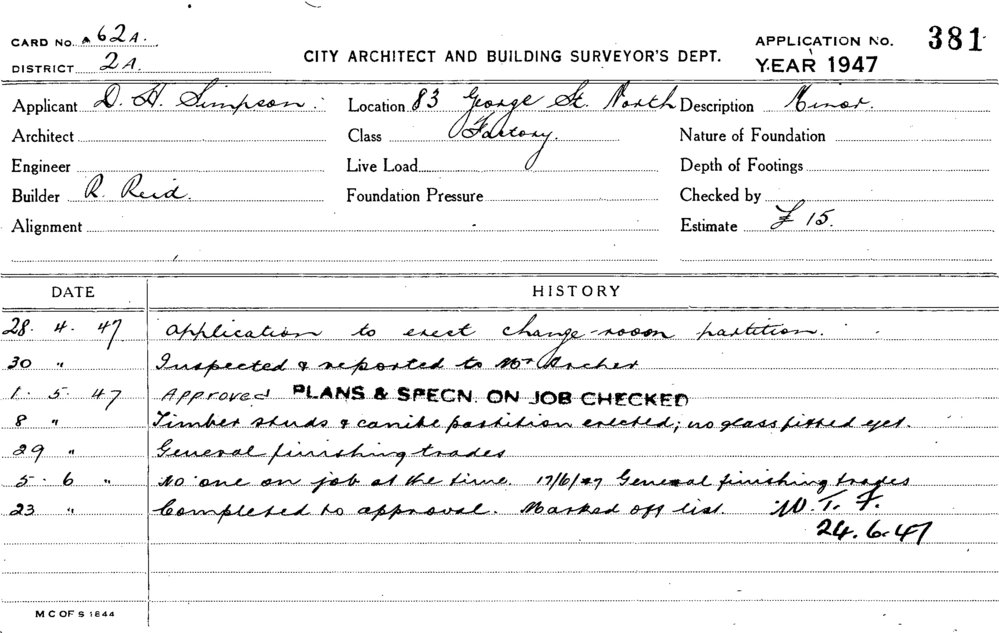 CARD NO. 62A. CITY ARCHITECT AND BUILDING SURVEYOR'S DEPT. APPLICATION NO. 381
DISTRICT 2A. YEAR 1947
Applicant D. H. Simpson. Location 83 George St. North Description Minor.
Architect Class Factory. Nature of Foundation
Engineer Live Load Depth of Footings
Builder R. Reid. Foundation Pressure Checked by
Alignment Estimate £15.
DATE HISTORY
28. 4. 47 Application to erect change-room partition.
30 " Inspected & reported to Mr Archer
1. 5. 47 Approved PLANS & SPECN. ON JOB CHECKED
8 " Timber studs & canite partition erected; no glass fitted yet.
29 " General finishing trades
5. 6 " No one on job at the time. 17/6/47 General finishing trades
23 " Completed to approval. Marked off list W. T. F.
24.6.47
M C OF S 1844